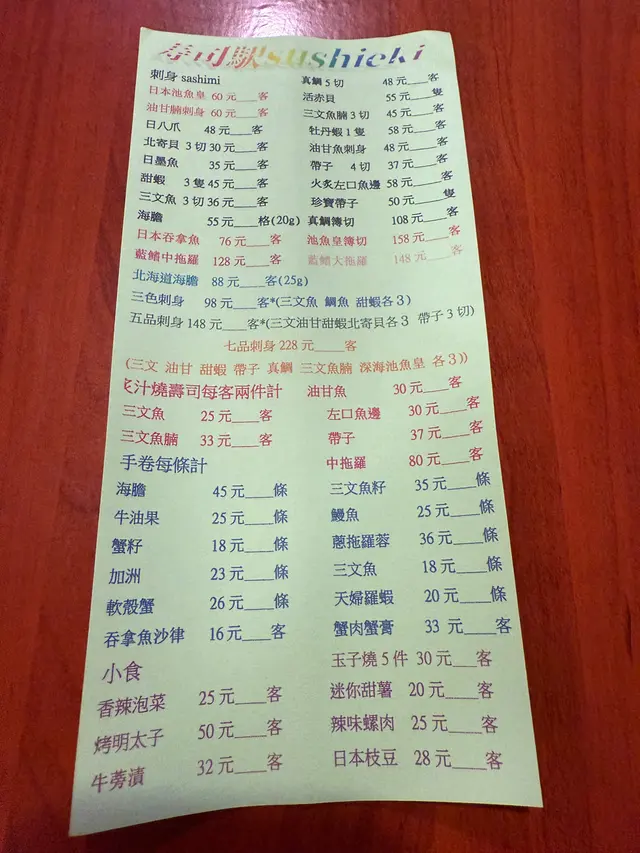 寿司駅sushieki
刺身 sashimi 真鯛 5 切 48 元___客
日本池魚皇 60 元___客 活赤貝 55 元___隻
油甘腩刺身 60 元___客 三文魚腩 3 切 45 元___客
日八爪 48 元___客 牡丹蝦 1 隻 58 元___客
北寄貝 3 切 30 元___客 油甘魚刺身 48 元___客
日墨魚 35 元___客 帶子 4 切 37 元___客
甜蝦 3 隻 45 元___客 火炙左口魚邊 58 元___客
三文魚 3 切 36 元___客 珍寶帶子 50 元___隻
海膽 55 元___格(20g) 真鯛簿切 108 元___客
日本吞拿魚 76 元___客 池魚皇簿切 158 元___客
藍鰭中拖羅 128 元___客 藍鰭大拖羅 148 元___客
北海道海膽 88 元___客(25g)
三色刺身 98 元___客*(三文魚 鯛魚 甜蝦各 3)
五品刺身 148 元___客*(三文油甘甜蝦北寄貝各 3 帶子 3 切)
七品刺身 228 元___客
(三文 油甘 甜蝦 帶子 真鯛 三文魚腩 深海池魚皇 各 3))
汁燒壽司每客兩件計 油甘魚 30 元___客
三文魚 25 元___客 左口魚邊 30 元___客
三文魚腩 33 元___客 帶子 37 元___客
手卷每條計 中拖羅 80 元___客
海膽 45 元___條 三文魚籽 35 元___條
牛油果 25 元___條 鰻魚 25 元___條
蟹籽 18 元___條 蔥拖羅蓉 36 元___條
加洲 23 元___條 三文魚 18 元___條
軟殼蟹 26 元___條 天婦羅蝦 20 元___條
吞拿魚沙律 16 元___客 蟹肉蟹膏 33 元___客
小食 玉子燒 5 件 30 元___客
香辣泡菜 25 元___客 迷你甜薯 20 元___客
烤明太子 50 元___客 辣味螺肉 25 元___客
牛蒡漬 32 元___客 日本枝豆 28 元___客